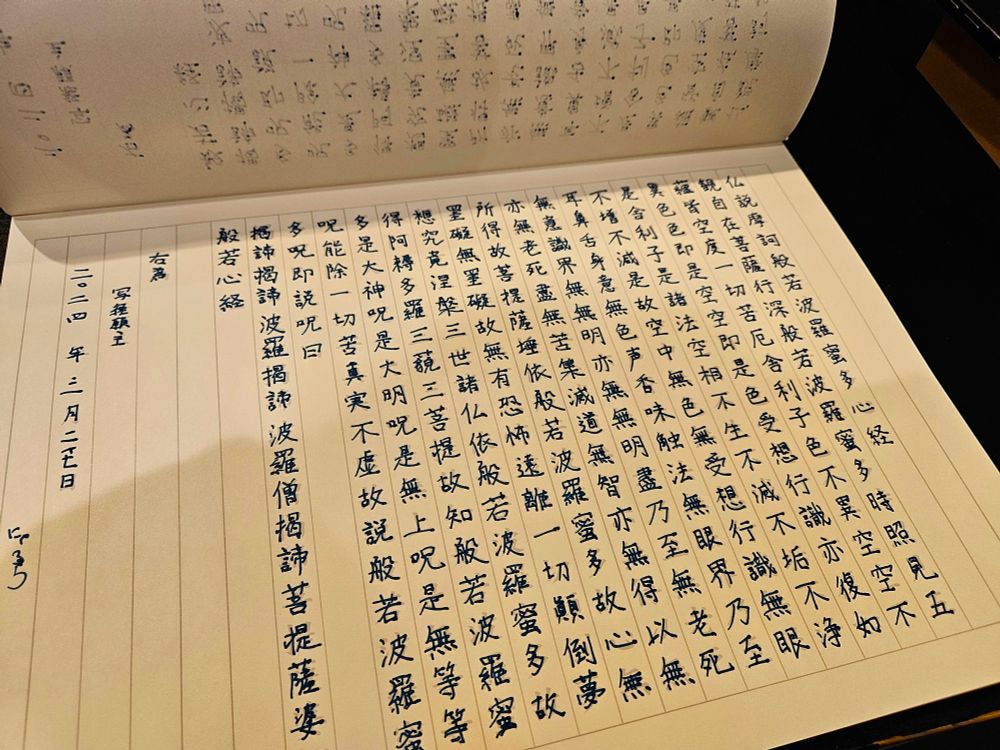 仏説摩訶般若波羅蜜多心経
観自在菩薩行深般若波羅蜜多時照見五
蘊皆空度一切苦厄舎利子色不異空空不
異色色即是空空即是色受想行識亦復如
是舎利子是諸法空相不生不滅不垢不浄
不増不減是故空中無色無受想行識無眼
耳鼻舌身意無色声香味触法無眼界乃至
無意識界無無明亦無無明盡乃至無老死
亦無老死盡無苦集滅道無智亦無得以無
所得故菩提薩埵依般若波羅蜜多故心無
罣礙無罣礙故無有恐怖遠離一切顛倒夢
想究竟涅槃三世諸仏依般若波羅蜜多故
得阿耨多羅三藐三菩提故知般若波羅蜜
多是大神呪是大明呪是無上呪是無等等
呪能除一切苦真実不虚故説般若波羅蜜
多呪即説呪曰
掲諦掲諦波羅掲諦波羅僧掲諦菩提薩婆
般若心経
右為
写経願主
二〇二四年三月二十七日